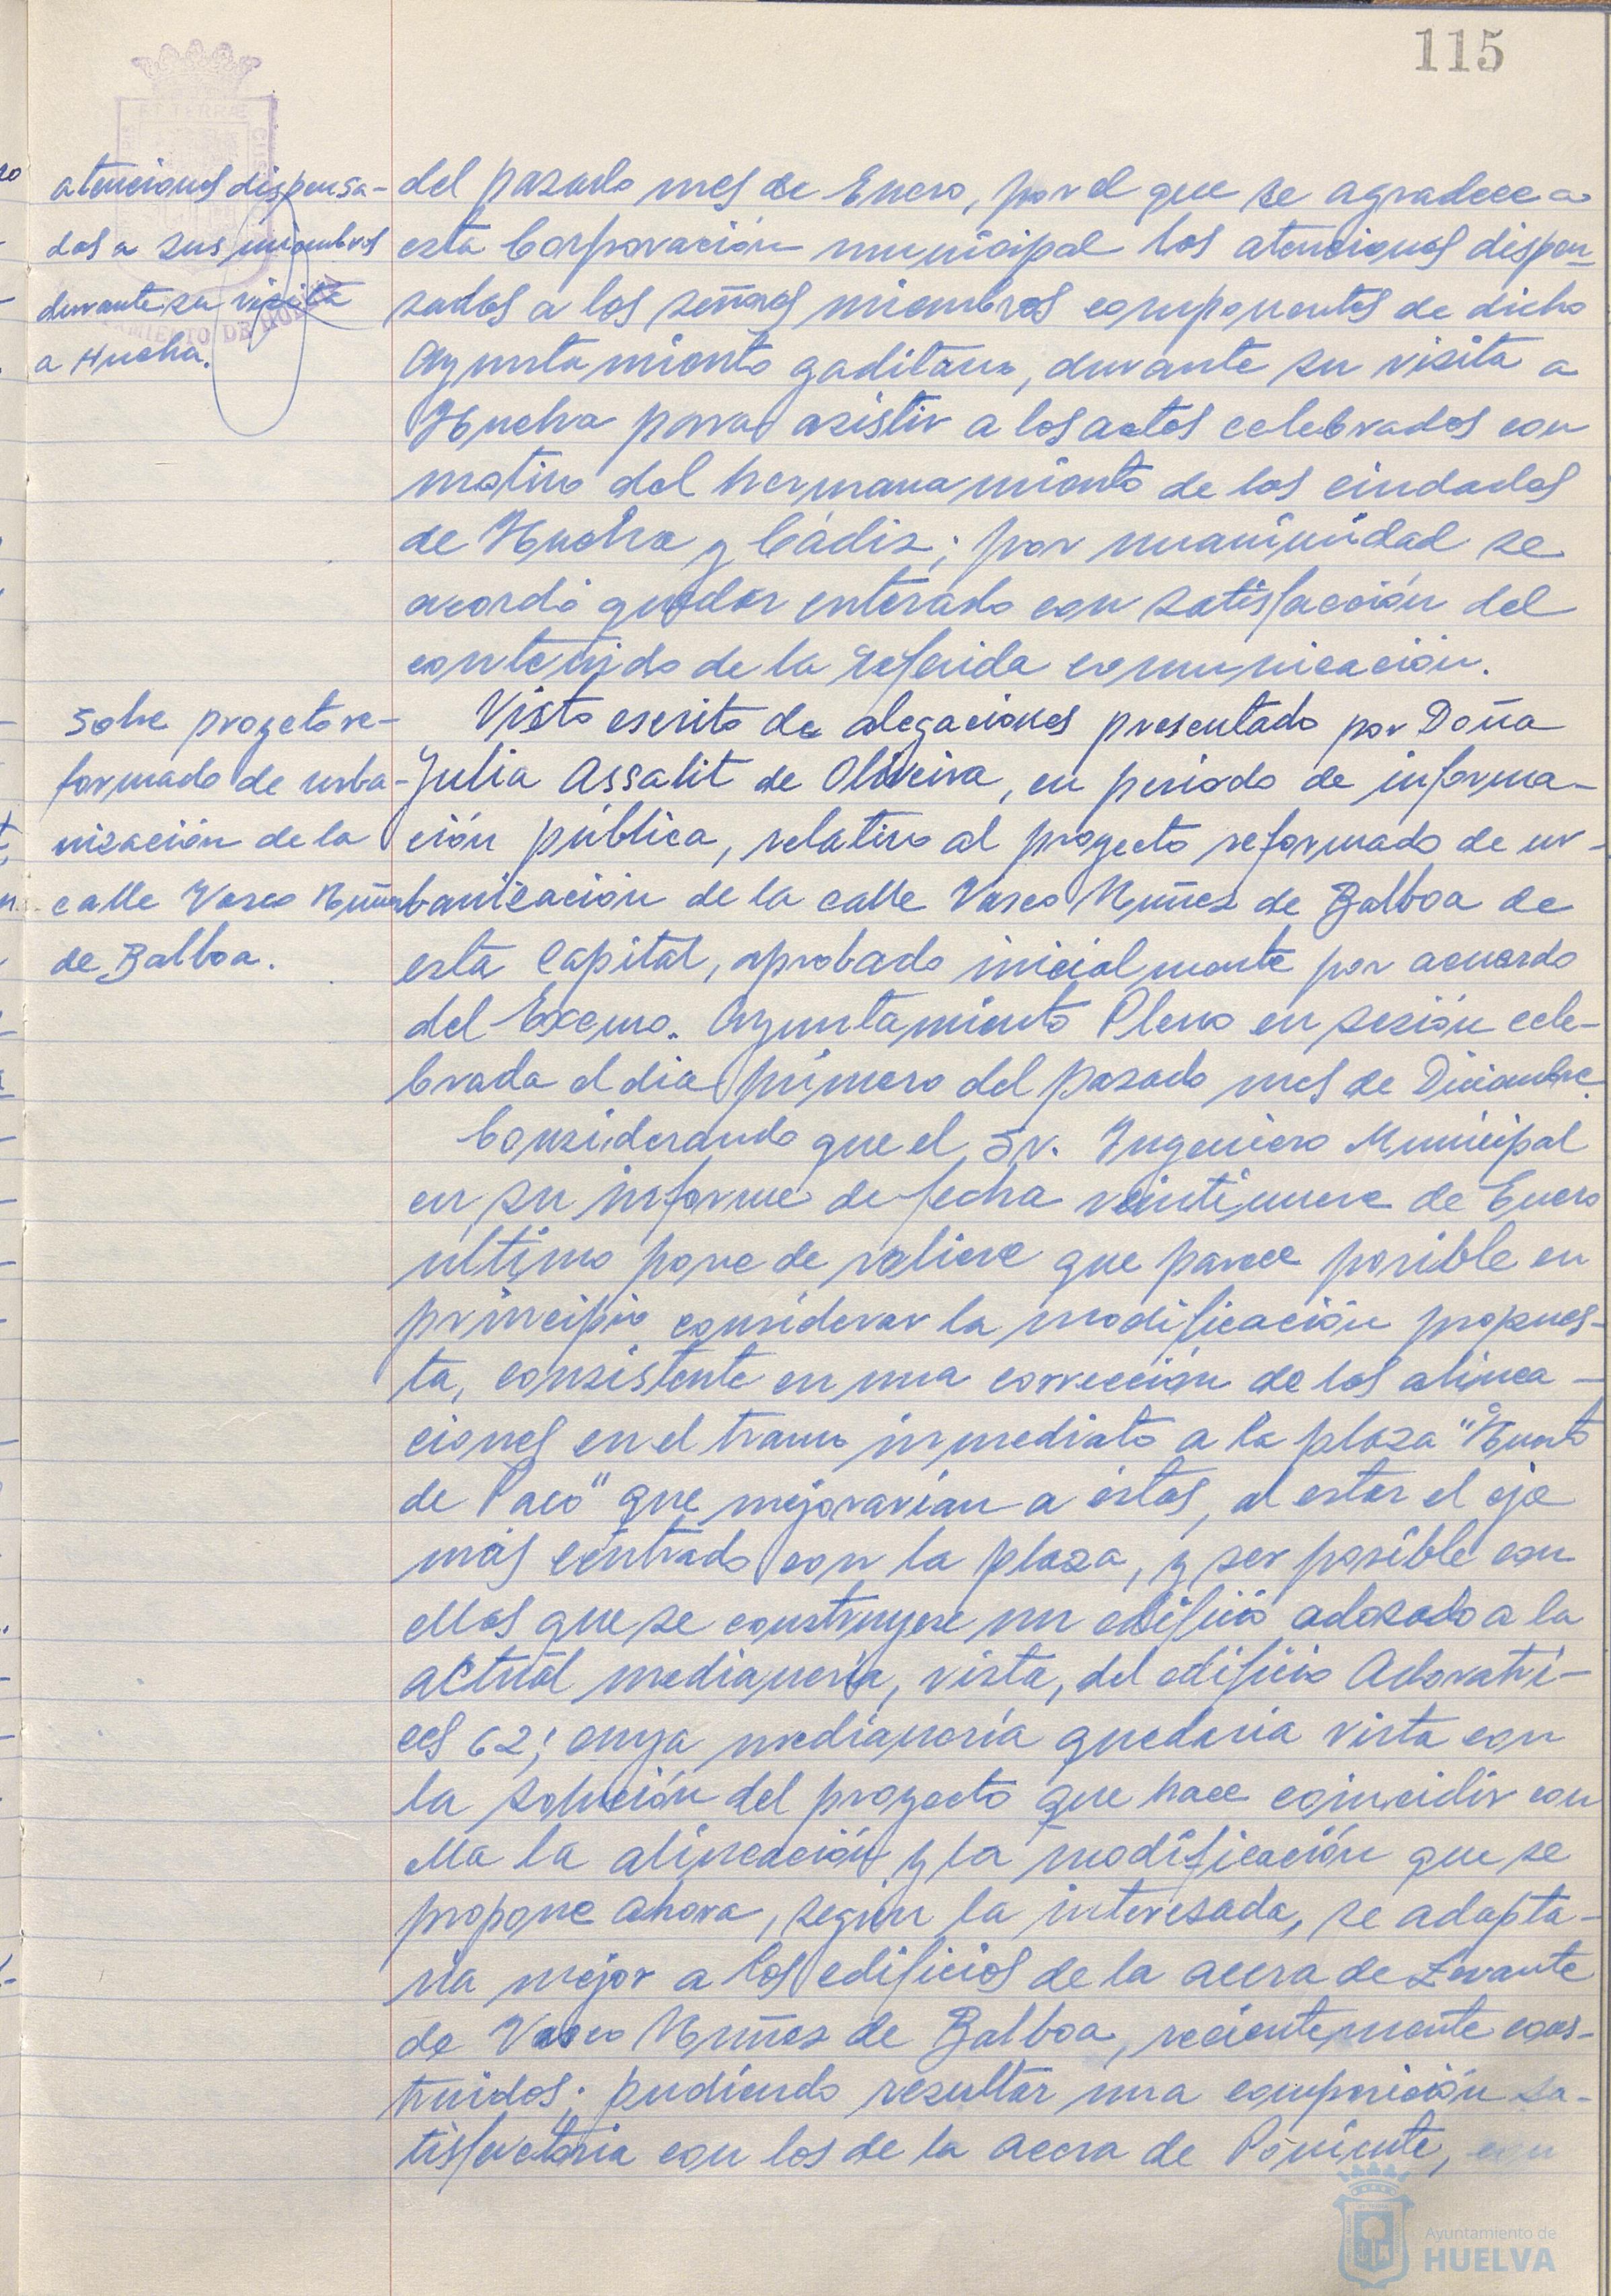 115
atenciones dispensa-
das a sus miembros
durante su visita
a Huelva.
del pasado mes de Enero, por el que se agradece a
esta Corporación municipal las atenciones dispen-
sadas a los señores miembros componentes de dicho
Ayuntamiento gaditano, durante su visita a
Huelva para asistir a los actos celebrados con
motivo del hermanamiento de las ciudades
de Huelva y Cádiz; por unanimidad se
acordó quedar enterado con satisfacción del
contenido de la referida comunicación.
Sobre proyecto re-
formado de urba-
nización de la
calle Vasco Núñez
de Balboa.
Visto escrito de alegaciones presentado por Doña
Julia Assalit de Oliveira, en periodo de informa-
ción pública, relativo al proyecto reformado de ur-
banización de la calle Vasco Núñez de Balboa de
esta Capital, aprobado inicialmente por acuerdo
del Excmo. Ayuntamiento Pleno en sesión cele-
brada el dia primero del pasado mes de Diciembre.
Considerando que el Sr. Ingeniero Municipal
en su informe de fecha veintinueve de Enero
último pone de relieve que parece posible en
principio considerar la modificación propues-
ta, consistente en una corrección de las alinea-
ciones en el tramo inmediato a la plaza "Huerto
de Paco" que mejorarían a éstas, al estar el eje
más centrado con la plaza, y ser posible con
ellas que se construyese un edificio adosado a la
actual medianería, vista, del edificio Adoratri-
ces 62; cuya medianería quedaria vista con
la solución del proyecto que hace coincidir con
ella la alineación y la modificación que se
propone ahora, según la interesada, se adapta-
ria mejor a los edificios de la acera de Levante
de Vasco Núñez de Balboa, recientemente cons-
truidos; pudiendo resultar una composición sa-
tisfactoria con los de la acera de Poniente, con
Ayuntamiento de
HUELVA